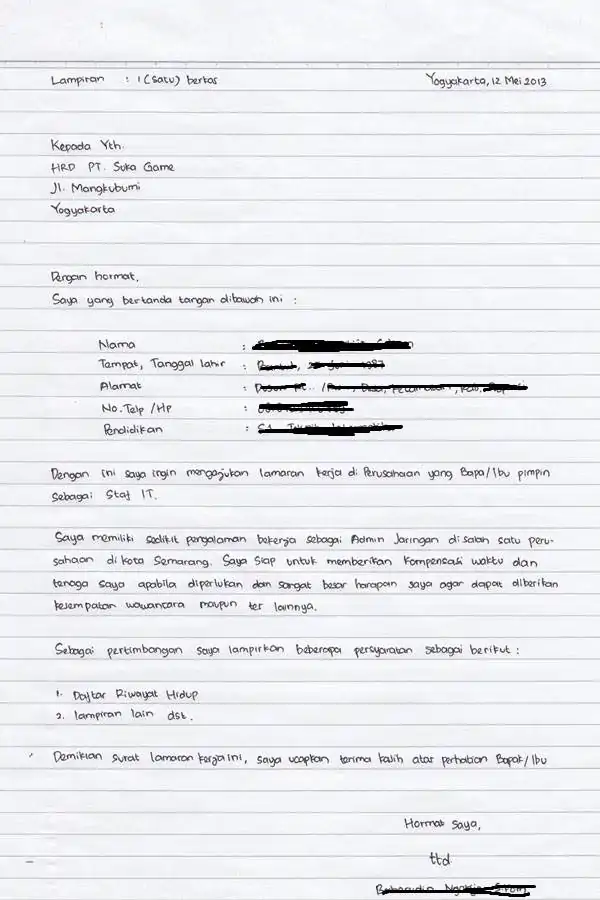 Lampiran : 1 (satu) berkas Yogyakarta, 12 Mei 2013
Kepada Yth.
HRD PT. Suka Game
Jl. Mangkubumi
Yogyakarta
Dengan hormat,
Saya yang bertanda tangan dibawah ini :
Nama :
Tempat, Tanggal lahir :
Alamat :
No. Telp /Hp :
Pendidikan :
Dengan ini saya ingin mengajukan lamaran kerja di Perusahaan yang Bapa/Ibu pimpin
Sebagai Staf IT.
Saya memiliki sedikit pengalaman bekerja sebagai Admin Jaringan di salah satu peru-
sahaan di kota Semarang. Saya Siap untuk memberikan kompensasi waktu dan
tenaga saya apabila diperlukan dan sangat besar harapan saya agar dapat diberikan
kesempatan wawancara maupun tes lainnya.
Sebagai pertimbangan saya lampirkan beberapa persyaratan sebagai berikut :
1. Daftar Riwayat Hidup
2. lampiran lain dst.
Demikian surat lamaran kerja ini, saya ucapkan terima kasih atas perhatian Bapak/Ibu
Hormat Saya,
ttd